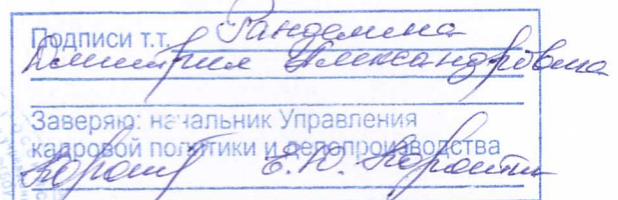 Подписи т.т. Рандолина
Дмитрия Александровича
Заверяю: начальник Управления
кадровой политики и делопроизводства
Е.Ю.